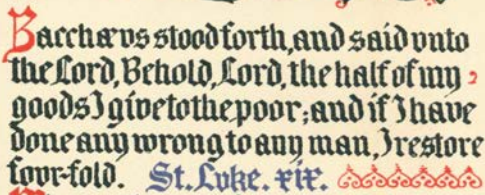 Zacchævs stood forth, and said vnto
the Lord, Behold, Lord, the half of my
goods I give to the poor; and if I have
done any wrong to any man, I restore
fovr-fold. St. Lvke. xix.